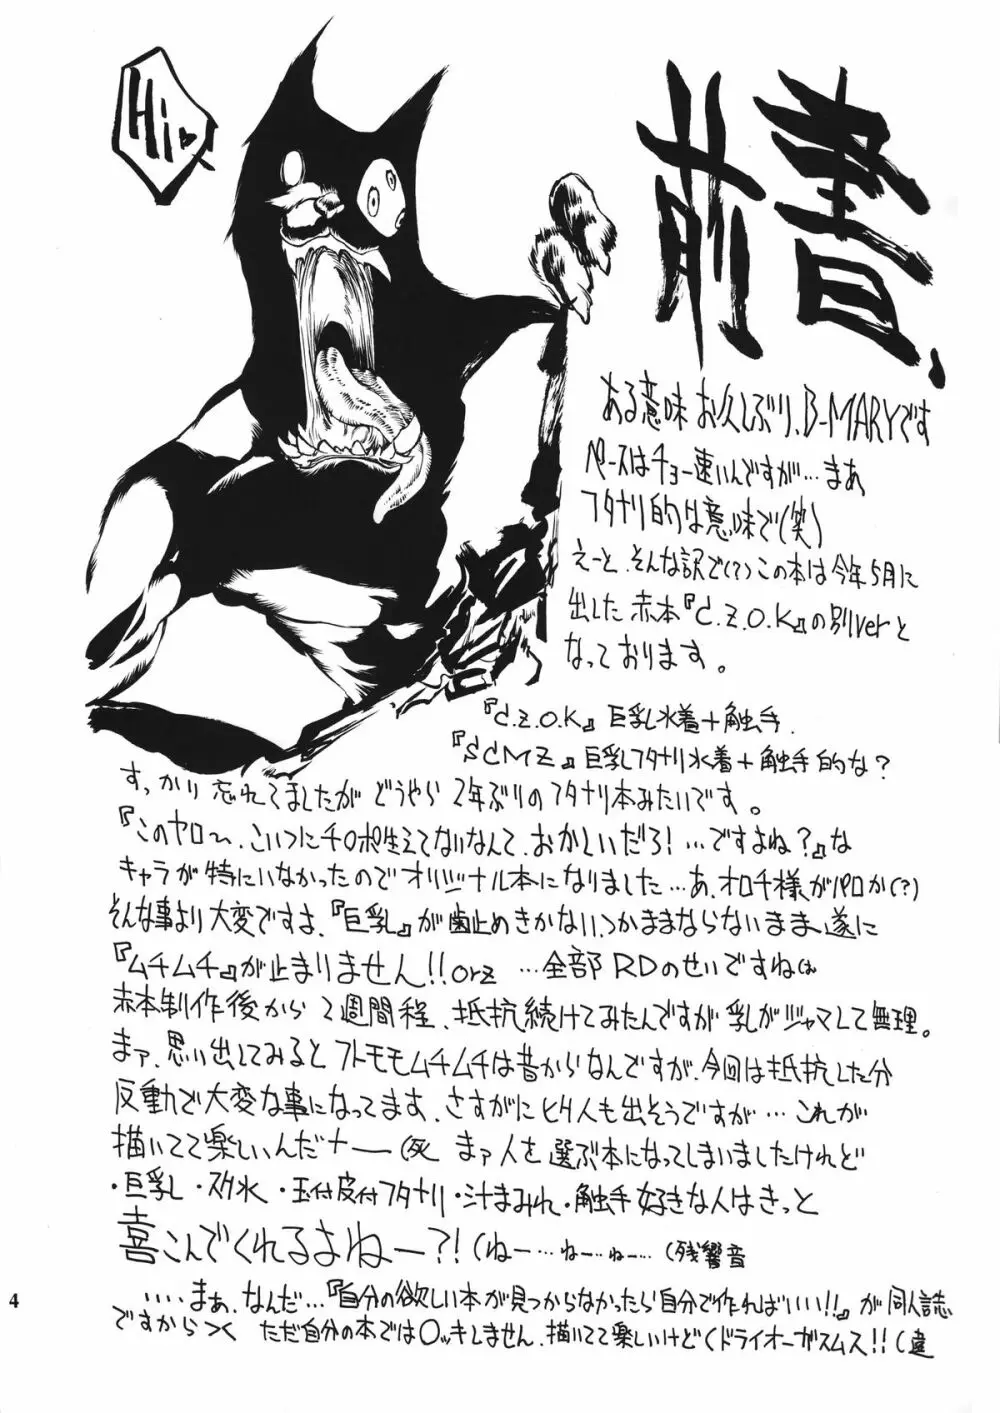 Hi♥
前書、
ある意味お久しぶり、B-MARYです
ペースはチョー速いんですが…まぁ
フタナリ的は意味で(笑)
えーと、そんな訳で(?)この本は今年5月に
出した赤本『C.Z.O.K』の別verと
なっております。
『C.Z.O.K』巨乳水着+触手.
『SCMZ』巨乳フタナリ水着+触手的な?
すっかり忘れてましたがどうやら2年ぶりのフタナリ本みたいです。
『このヤロ〜、こいつにチ〇ポ生えてないなんて、おかしいだろ!…ですよね?』な
キャラが特にいなかったのでオリジナル本になりました…あ、オロチ様がパロか(?)
そんな事より大変ですよ、『巨乳』が歯止めきかない、つかままならないまま、遂に
『ムチムチ』が止まりません!!orz …全部RDのせいですね
赤本制作後から2週間程、抵抗続けてみたんですが乳がジャマして無理。
まァ、思い出してみるとフトモモムチムチは昔からなんですが、今回は抵抗した分
反動で大変な事になってます、さすがにヒク人も出そうですが…これが
描いてて楽しいんだナー(死 まァ人を選ぶ本になってしまいましたけれど
・巨乳・スク水・玉付皮付フタナリ・汁まみれ・触手好きな人はきっと
喜こんでくれるよねー?!(ねー…ねー…ねー…(残響音
....まぁ、なんだ…『自分の欲しい本が見つからなかったら自分で作ればいい!!』が同人誌
ですから ただ自分の本では〇ッキしません、描いてて楽しいけど(ドライオーガスムス!!(違
4